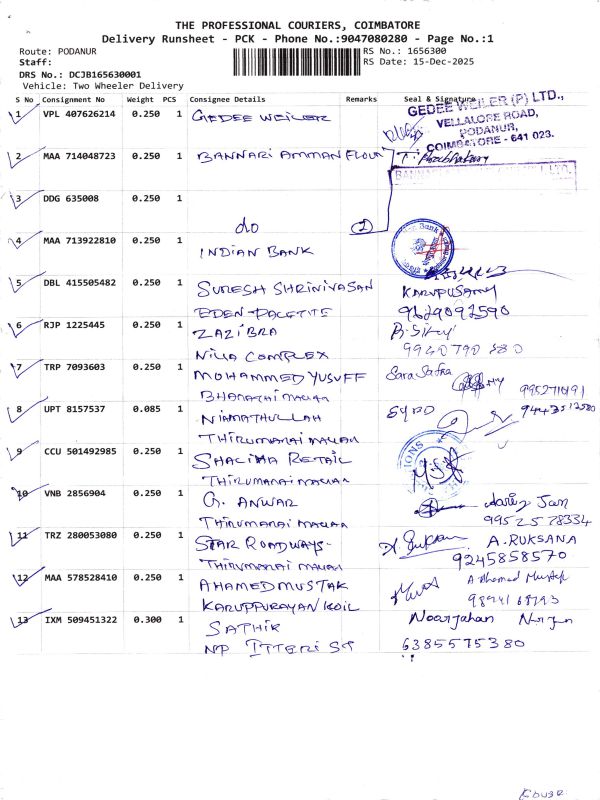 THE PROFESSIONAL COURIERS, COIMBATORE
Delivery Runsheet - PCK - Phone No.:9047080280 - Page No.:1
Route: PODANUR
RS No.: 1656300
Staff:
RS Date: 15-Dec-2025
DRS No.: DCJB165630001
Vehicle: Two Wheeler Delivery
S No Consignment No Weight PCS Consignee Details Remarks Seal & Signature
1 VPL 407626214 0.250 1 GEDEE WEILER
GEDEE WEILER (P) LTD.,
VELLALORE ROAD,
PODANUR,
COIMBATORE - 641 023.
2 MAA 714048723 0.250 1 BANNARI AMMAN FLOUR
3 DDG 635008 0.250 1
do (2)
4 MAA 713922810 0.250 1
INDIAN BANK
5 DBL 415505482 0.250 1 SURESH SHRINIVASAN KARUPUSAMY
EDEN 9629092590
6 RJP 1225445 0.250 1 ZAZIBRA
NILLA COMPLEX 9940790380
7 TRP 7093603 0.250 1 MOHAMMED YUSUFF
9952711191
8 UPT 8157537 0.085 1 NIAMATHULLAH SYED
THIRUMARAI
9 CCU 501492985 0.250 1 SHALIMA RETAIL
THIRUMARAI
10 VNB 2856904 0.250 1 G. ANWAR
THIRUMARAI 9952578334
11 TRZ 280053080 0.250 1 STAR ROADWAYS- A. RUKSANA
THIRUMARAI 9245858570
12 MAA 578528410 0.250 1 AHAMED MUSTAK
KARUPPURAYAN KOIL
13 IXM 509451322 0.300 1 SATHIK Noorjahan
NP ITTERI ST 6385575380